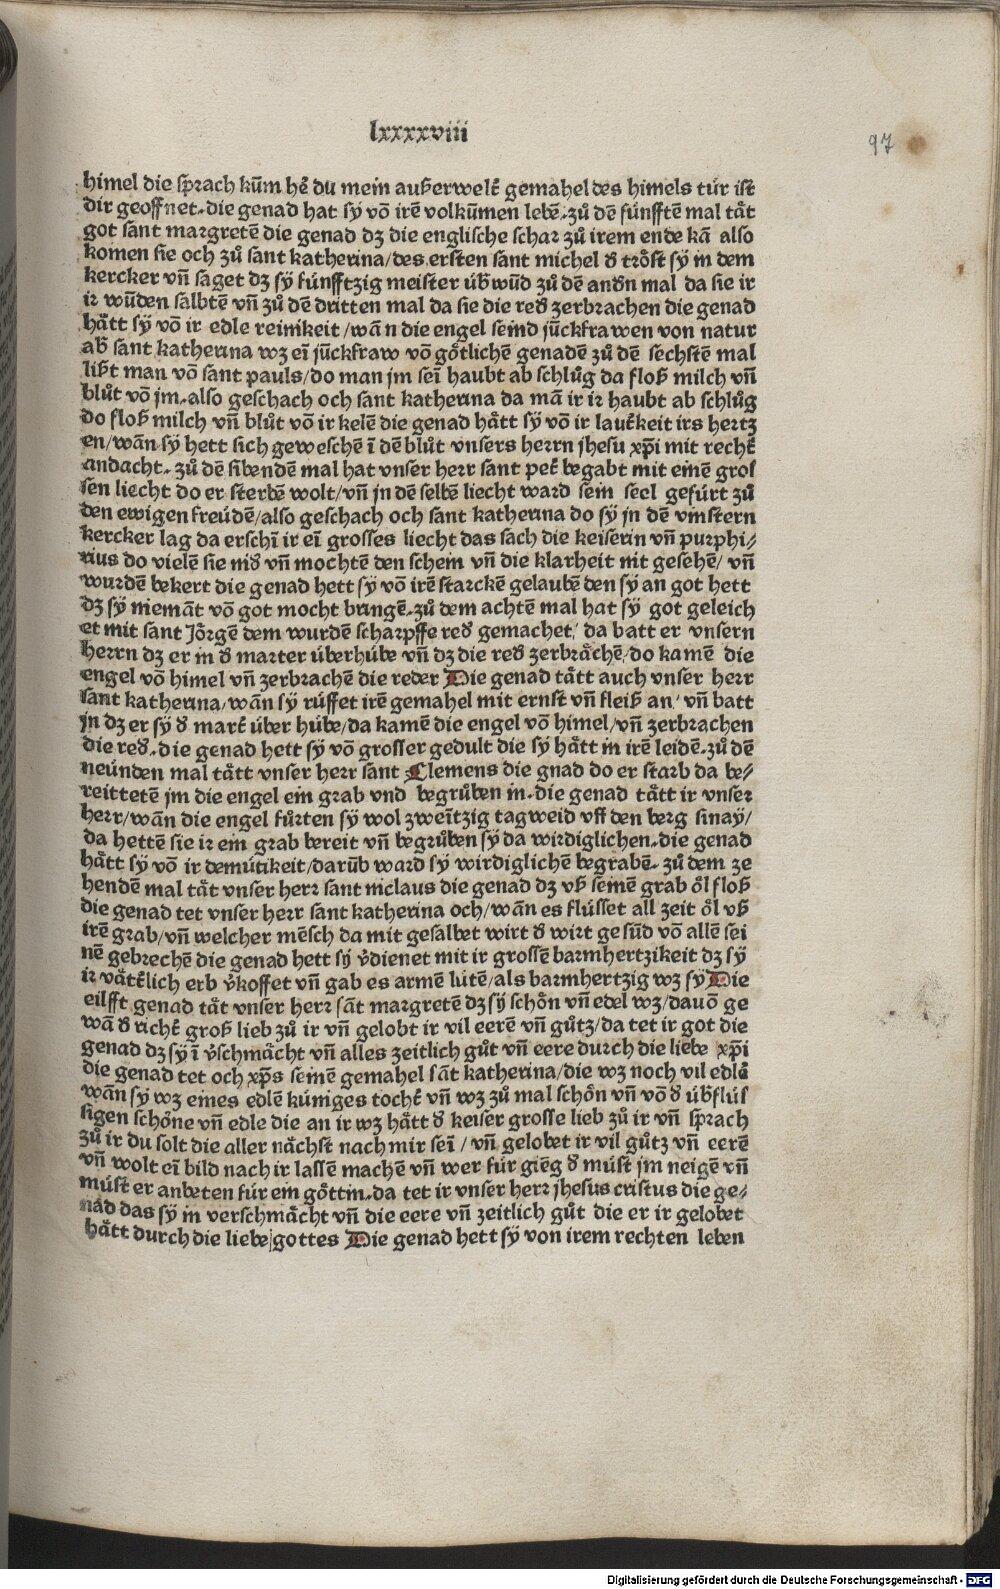 lxxxxviii
97
himel die sprach kūm hē du mein außerwelt̄ gemahel des himels tür ist
dir geoffnet. die genad hat sÿ vō irē volkūmen lebē. zů dē fünfftē mal tåt
got sant margretē die genad dz die englische schar zů irem ende kā also
komen sie och zů sant katherina/ des ersten sant michel d̄ tröst sÿ in dem
kercker vn̄ saget dz sÿ fünfftzig meister üb̄wūd zů dē andn̄ mal da sie ir
ir wūden salbtē vn̄ zů dē dritten mal da sie die red̄ zerbrachen die genad
hått sÿ vō ir edle reinikeit/ wān die engel seind jūckfrawen von natur
ab̄ sant katherina wz eī jūckfraw vō götlichē genadē zů dē sechstē mal
lißt man vō sant pauls/ do man jm seī haubt ab schlůg da floß milch vn̄
blůt vō jm. also geschach och sant katherina da mā ir ir haubt ab schlůg
do floß milch vn̄ blůt vō ir kelē die genad hått sÿ vō ir laut̄keit irs hertz
en/ wān sÿ hett sich geweschē ī dē blůt vnsers herrn jhesu xp̄i mit recht̄
andacht. zů dē sibendē mal hat vnser herr sant pet̄ begabt mit einē gros
sen liecht do er sterbē wolt/ vn̄ jn dē selbē liecht ward sein seel gefürt zů
den ewigen freüdē/ also geschach och sant katherina do sÿ jn dē vinstern
kercker lag da erschī ir eī grosses liecht das sach die keiserin vn̄ purphi/
rius do vielē sie nid̄ vn̄ mochtē den schein vn̄ die klarheit nit gesehē/ vn̄
wurdē bekert die genad hett sÿ vō irē starckē gelaubē den sÿ an got hett
dz sÿ niemāt vō got mocht bringē. zů dem achtē mal hat sÿ got geleich
et mit sant Jörgē dem wurdē scharpffe red̄ gemachet/ da batt er vnsern
herrn dz er in d̄ marter überhübe vn̄ dz die red̄ zerbråchē. do kamē die
engel vō himel vn̄ zerbrachē die reder Die genad tått auch vnser herr
sant katherina/ wān sÿ rüffet irē gemahel mit ernst vn̄ fleiß an/ vn̄ batt
jn dz er sÿ d̄ mart̄ über hübe/ da kamē die engel vō himel/ vn̄ zerbrachen
die red̄. die genad hett sÿ vō grosser gedult die sÿ hått in irē leidē. zů dē
neünden mal tått vnser herr sant Clemens die gnad do er starb da be/
reittetē jm die engel ein grab vnd begrůben in. die genad tått ir vnser
herr/ wān die engel fůrten sÿ wol zweītzig tagweid vff den berg sinaÿ/
da hettē sie ir ein grab bereit vn̄ begrůben sÿ da wirdiglichen. die genad
hått sÿ vō ir demütikeit/ darūb ward sÿ wirdiglichē begrabē. zů dem ze
hendē mal tåt vnser herr sant niclaus die genad dz vß seinē grab öl floß
die genad tet vnser herr sant katherina och/ wān es flüsset all zeit öl vß
irē grab/ vn̄ welcher mēsch da mit gesalbet wirt d̄ wirt gesūd vō allē sei
nē gebrechē die genad hett sÿ v̄dienet mit ir grossē barmhertzikeit dz sÿ
ir våt̄lich erb v̄koffet vn̄ gab es armē lütē/ als barmhertzig wz sÿ Die
eilfft genad tåt vnser herr sāt margretē dz sÿ schön vn̄ edel wz/ dauō ge
wā d̄ richt̄ groß lieb zů ir vn̄ gelobt ir vil eerē vn̄ gůtz/ da tet ir got die
genad dz sÿ ī v̄schmåcht vn̄ alles zeitlich gůt vn̄ eere durch die liebe xp̄i
die genad tet och xp̄s seinē gemahel sāt katherina/ die wz noch vil edlē
wān sÿ wz eines edlē küniges tocht̄ vn̄ wz zů mal schön vn̄ vō d̄ üb̄flüs
sigen schöne vn̄ edle die an ir wz hått d̄ keiser grosse lieb zů ir vn̄ sprach
zů ir du solt die aller nåchst nach mir seī/ vn̄ gelobet ir vil gůtz vn̄ eerē
vn̄ wolt eī bild nach ir lassē machē vn̄ wer für giēg d̄ müst jm neigē vn̄
müst er anbeten für ein göttin. da tet ir vnser herr jhesus cristus die ge/
nad das sÿ in verschmåcht vn̄ die eere vn̄ zeitlich gůt die er ir gelobet
hått durch die liebe gottes Die genad hett sÿ von irem rechten leben
Digitalisierung gefördert durch die Deutsche Forschungsgemeinschaft - DFG